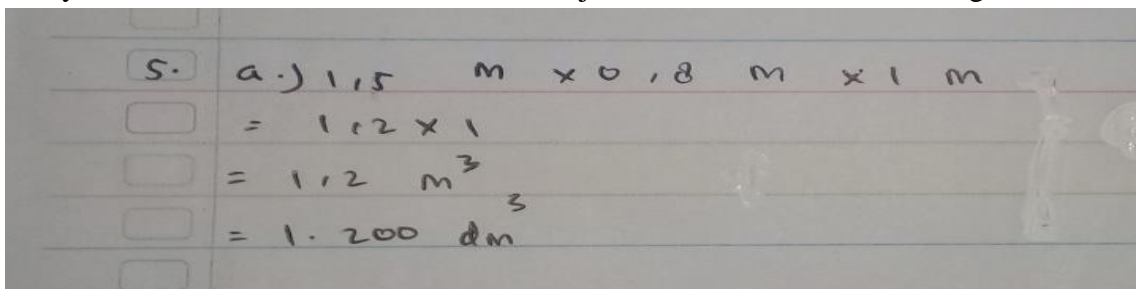 5. a.) 1,5 m x 0,8 m x 1 m
= 1,2 x 1
= 1,2 m³
= 1.200 dm³